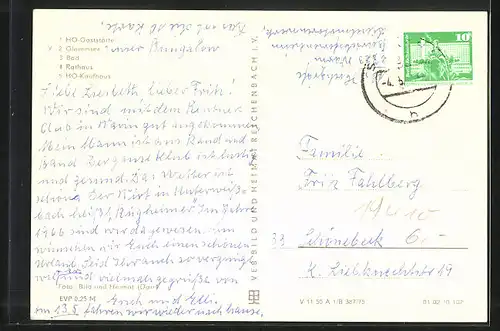 Karte,
1 HO-Gaststätte
2 Glammsee unser Bungalow
3 Bad
4 Rathaus
5 HO-Kaufhaus
Liebe Lisbeth, lieber Fritz!
Wir sind mit dem Rentner
Club in Warin gut angekommen
Mein Mann ist aus Rand und
Band. Der ganze Klub ist lustig
und gesund. Das Wetter ist
schön. Der Wirt in Unterweiß-
bach heißt Rügheimer. Im Jahre
1966 sind wir da gewesen. Nun
wünschen wir Euch einen schönen
Urlaub. Seid Ihr auch so vergnügt
und vielmals gegrüßt von
Foto: Bild und Heimat
EVP 0,25 M Erich und Elli.
am 13.5 fahren wir wieder nach hause.
VEB BILD UND HEIMAT REICHENBACH I. V.
10
Familie
Fritz Fahlberg
33 Schönebeck 6.-
K. Liebknechtstr 19
V 11 50 A 1/B 387/75